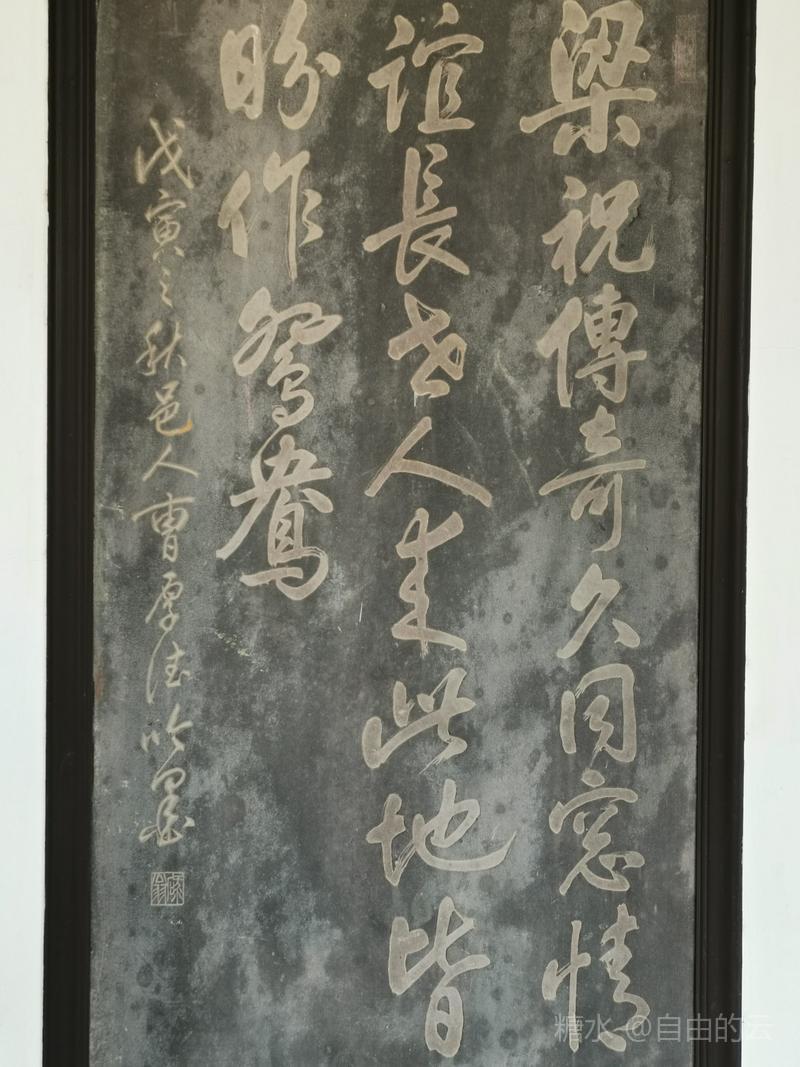 梁祝傳奇久同窓情
誼長世人来此地皆
盼作鴛鴦
戊寅之秋邑人曹厚德吟墨
糖水 @自由的云